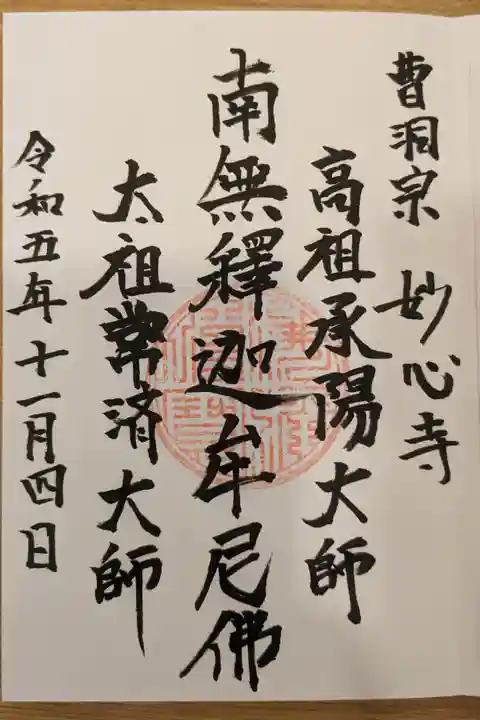 曹洞宗 妙心寺
高祖承陽大師
南無釋迦牟尼佛
太祖常済大師
令和五年十一月四日